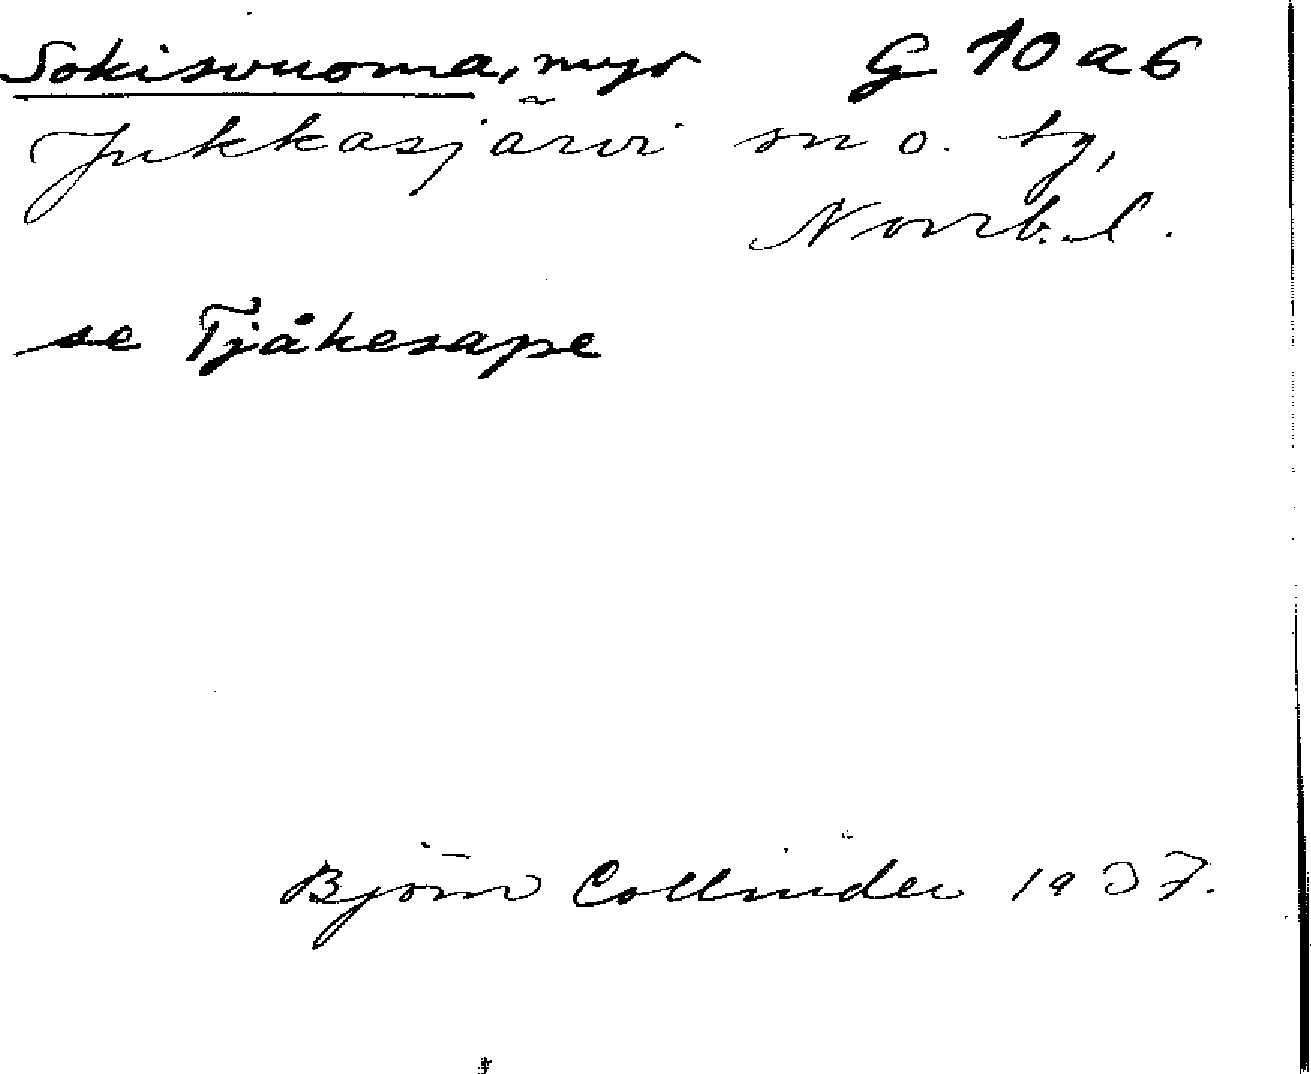 Sokisvuoma, myr G 10 a 6
Jukkasjärvi sn o. tg,
Norrb. l.
se Tjåkesape
Björn Collinder 1937.